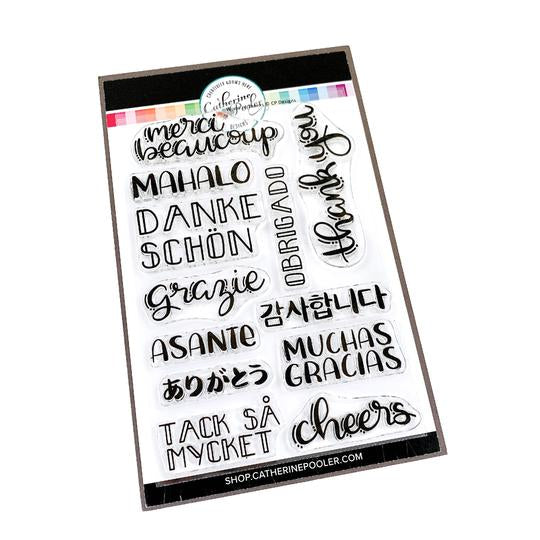 CREATIVITY GROWS HERE
Catherine
Pooler
DESIGNS
© CP Designs
merci
beaucoup
thank you
MAHALO
OBRIGADO
DANKE
SCHÖN
grazie
감사합니다
ASANTE
MUCHAS
GRACIAS
ありがとう
TACK SÅ
MYCKET
cheers
SHOP.CATHERINEPOOLER.COM